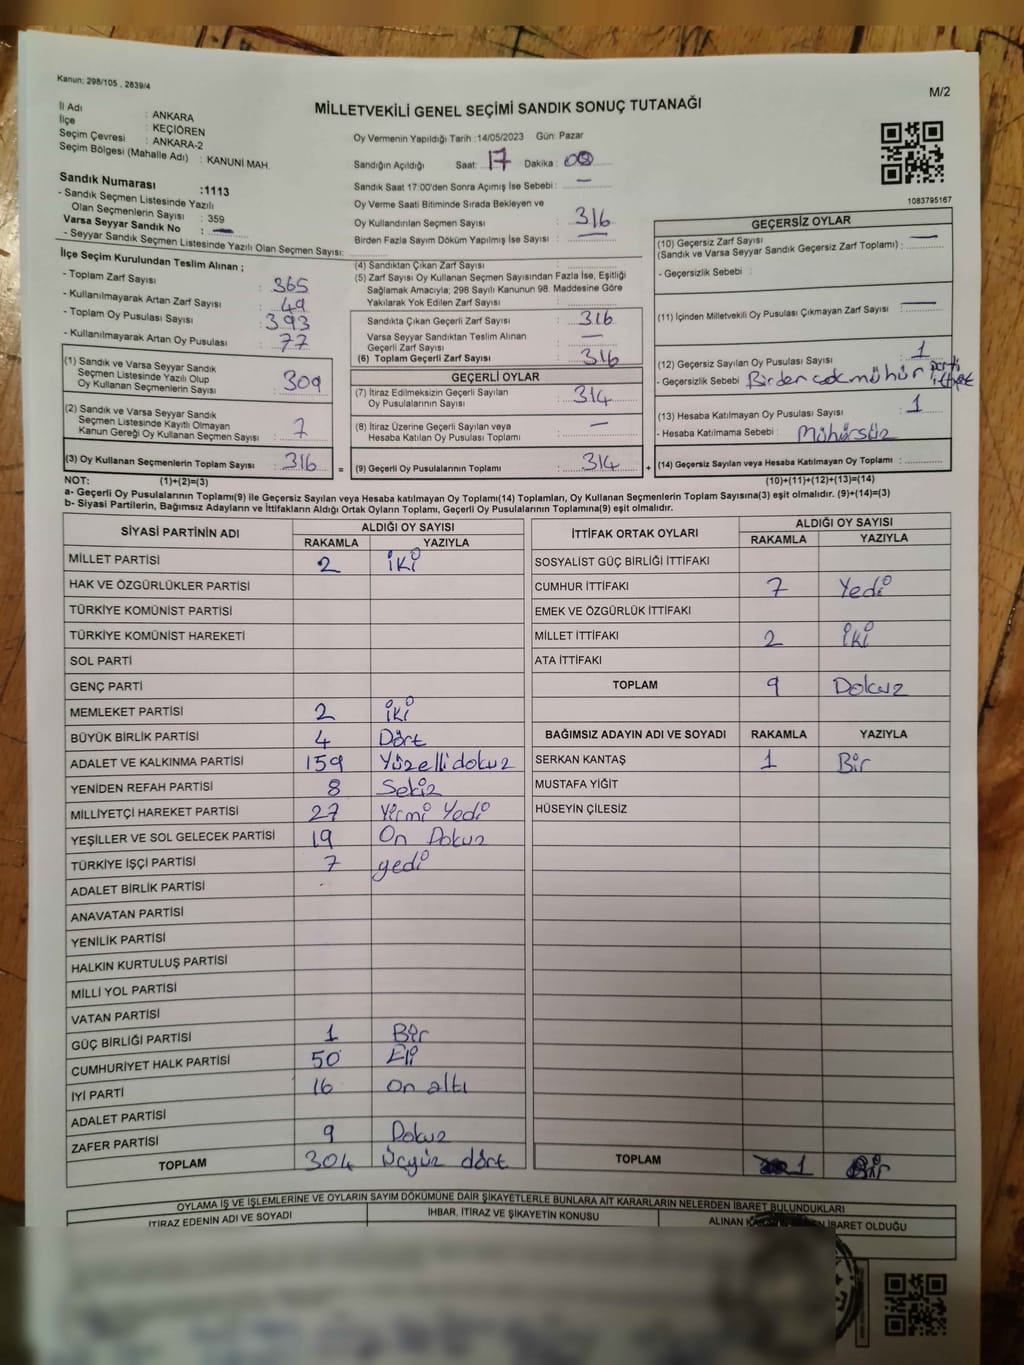 Kanun: 298/105 , 2839/4
M/2
MİLLETVEKİLİ GENEL SEÇİMİ SANDIK SONUÇ TUTANAĞI
İl Adı : ANKARA
İlçe : KEÇİÖREN
Seçim Çevresi : ANKARA-2
Seçim Bölgesi (Mahalle Adı) : KANUNİ MAH.
Sandık Numarası :1113
- Sandık Seçmen Listesinde Yazılı
Olan Seçmenlerin Sayısı : 359
Varsa Seyyar Sandık No : —
- Seyyar Sandık Seçmen Listesinde Yazılı Olan Seçmen Sayısı:
Oy Vermenin Yapıldığı Tarih :14/05/2023 Gün: Pazar
Sandığın Açıldığı Saat: 17 Dakika : 00
Sandık Saat 17:00'den Sonra Açımış İse Sebebi : —
Oy Verme Saati Bitiminde Sırada Bekleyen ve
Oy Kullandırılan Seçmen Sayısı : 316
Birden Fazla Sayım Döküm Yapılmış İse Sayısı : —
1083795167
İlçe Seçim Kurulundan Teslim Alınan ;
- Toplam Zarf Sayısı : 365
- Kullanılmayarak Artan Zarf Sayısı : 49
- Toplam Oy Pusulası Sayısı : 393
- Kullanılmayarak Artan Oy Pusulası : 77
(1) Sandık ve Varsa Seyyar Sandık
Seçmen Listesinde Yazılı Olup
Oy Kullanan Seçmenlerin Sayısı : 309
(2) Sandık ve Varsa Seyyar Sandık
Seçmen Listesinde Kayıtlı Olmayan
Kanun Gereği Oy Kullanan Seçmen Sayısı : 7
(3) Oy Kullanan Seçmenlerin Toplam Sayısı : 316 =
(4) Sandıktan Çıkan Zarf Sayısı :
(5) Zarf Sayısı Oy Kullanan Seçmen Sayısından Fazla İse, Eşitliği
Sağlamak Amacıyla; 298 Sayılı Kanunun 98. Maddesine Göre
Yakılarak Yok Edilen Zarf Sayısı :
Sandıkta Çıkan Geçerli Zarf Sayısı : 316
Varsa Seyyar Sandıktan Teslim Alınan
Geçerli Zarf Sayısı : —
(6) Toplam Geçerli Zarf Sayısı : 316
GEÇERLİ OYLAR
(7) İtiraz Edilmeksizin Geçerli Sayılan
Oy Pusulalarının Sayısı : 314
(8) İtiraz Üzerine Geçerli Sayılan veya
Hesaba Katılan Oy Pusulası Toplamı : —
(9) Geçerli Oy Pusulalarının Toplamı : 314 +
GEÇERSİZ OYLAR
(10) Geçersiz Zarf Sayısı
(Sandık ve Varsa Seyyar Sandık Geçersiz Zarf Toplamı) : —
- Geçersizlik Sebebi :
(11) İçinden Milletvekili Oy Pusulası Çıkmayan Zarf Sayısı : —
(12) Geçersiz Sayılan Oy Pusulası Sayısı : 1
- Geçersizlik Sebebi Birden çok mühür
(13) Hesaba Katılmayan Oy Pusulası Sayısı : 1
- Hesaba Katılmama Sebebi : Mühürsüz
(14) Geçersiz Sayılan veya Hesaba Katılmayan Oy Toplamı :
NOT: (1)+(2)=(3) (10)+(11)+(12)+(13)=(14)
a- Geçerli Oy Pusulalarının Toplamı(9) ile Geçersiz Sayılan veya Hesaba katılmayan Oy Toplamı(14) Toplamları, Oy Kullanan Seçmenlerin Toplam Sayısına(3) eşit olmalıdır. (9)+(14)=(3)
b- Siyasi Partilerin, Bağımsız Adayların ve İttifakların Aldığı Ortak Oyların Toplamı, Geçerli Oy Pusulalarının Toplamına(9) eşit olmalıdır.
SİYASİ PARTİNİN ADI ALDIĞI OY SAYISI
RAKAMLA YAZIYLA
MİLLET PARTİSİ 2 iki
HAK VE ÖZGÜRLÜKLER PARTİSİ
TÜRKİYE KOMÜNİST PARTİSİ
TÜRKİYE KOMÜNİST HAREKETİ
SOL PARTİ
GENÇ PARTİ
MEMLEKET PARTİSİ 2 iki
BÜYÜK BİRLİK PARTİSİ 4 Dört
ADALET VE KALKINMA PARTİSİ 159 Yüzellidokuz
YENİDEN REFAH PARTİSİ 8 Sekiz
MİLLİYETÇİ HAREKET PARTİSİ 27 Yirmi Yedi
YEŞİLLER VE SOL GELECEK PARTİSİ 19 On Dokuz
TÜRKİYE İŞÇİ PARTİSİ 7 yedi
ADALET BİRLİK PARTİSİ
ANAVATAN PARTİSİ
YENİLİK PARTİSİ
HALKIN KURTULUŞ PARTİSİ
MİLLİ YOL PARTİSİ
VATAN PARTİSİ
GÜÇ BİRLİĞİ PARTİSİ 1 Bir
CUMHURİYET HALK PARTİSİ 50 Elli
İYİ PARTİ 16 on altı
ADALET PARTİSİ
ZAFER PARTİSİ 9 Dokuz
TOPLAM 304 Üçyüz dört
İTTİFAK ORTAK OYLARI ALDIĞI OY SAYISI
RAKAMLA YAZIYLA
SOSYALİST GÜÇ BİRLİĞİ İTTİFAKI
CUMHUR İTTİFAKI 7 Yedi
EMEK VE ÖZGÜRLÜK İTTİFAKI
MİLLET İTTİFAKI 2 iki
ATA İTTİFAKI
TOPLAM 9 Dokuz
BAĞIMSIZ ADAYIN ADI VE SOYADI RAKAMLA YAZIYLA
SERKAN KANTAŞ 1 Bir
MUSTAFA YİĞİT
HÜSEYİN ÇİLESİZ
TOPLAM 1 Bir
OYLAMA İŞ VE İŞLEMLERİNE VE OYLARIN SAYIM DÖKÜMÜNE DAİR ŞİKAYETLERLE BUNLARA AİT KARARLARIN NELERDEN İBARET BULUNDUKLARI
İTİRAZ EDENİN ADI VE SOYADI İHBAR, İTİRAZ VE ŞİKAYETİN KONUSU ALINAN İBARET OLDUĞU